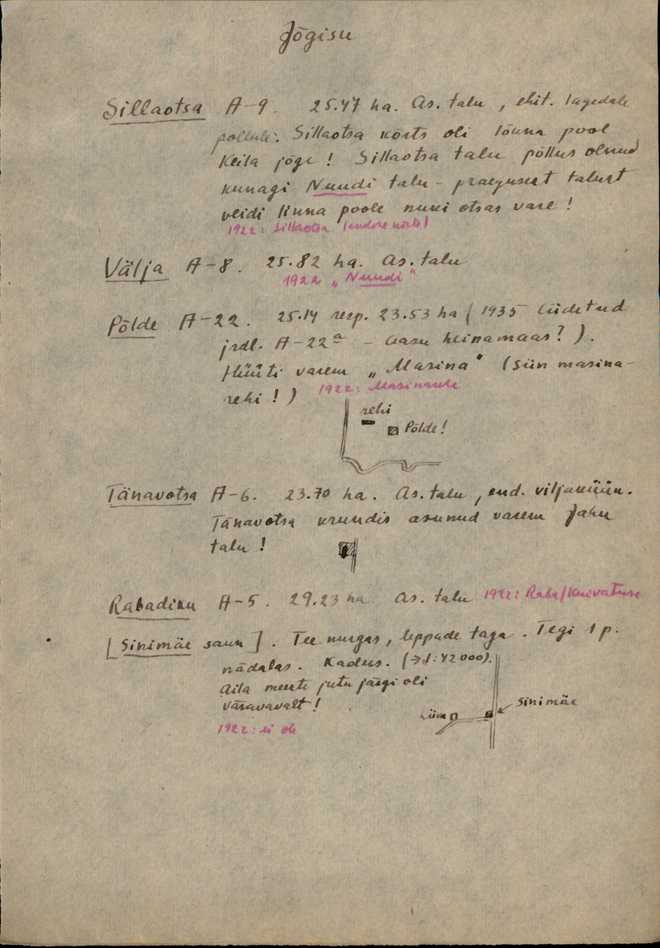 Jõgisu
Sillaotsa A-9. 25.47 ha. As. talu, ehit. lagedale
põllule. Sillaotsa kõrts oli lõuna pool
Keila jõge! Sillaotsa talu põllus olnud
kunagi Nuudi talu - praegusest talust
veidi linna poole nurmi otsas vare!
1922: Sillaotsa (endine kõrts)
Välja A-8. 25.82 ha. As. talu
1922 „Nuudi"
Põlde A-22. 25.14 resp. 23.53 ha (1935 liidetud
jrdl. A-22a - Vasu heinamaas?).
Hüüti varem „Masina" (siin masina-
rehi!) 1922: Masina
rehi
Põlde!
Tänavotsa A-6. 23.70 ha. As. talu, end. viljaküün.
Tänavotsa krundis asunud varem Jahu
talu!
Rabadiku A-5. 29.23 ha As. talu 1922: Raba/Kuivatuse
[Sinimäe saun]. Tee nurgas, leppade taga. Tegi 1 p.
nädalas. Kadus. (→1:42000).
Aila meeste jutu järgi oli
väravavalt!
Sinimäe
1922: ei ole